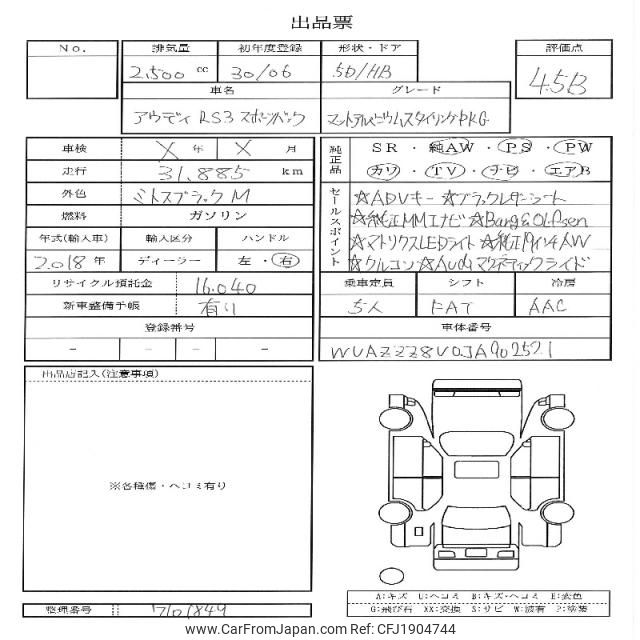 出品票
No. 排気量 初年度登録 形状・ドア 評価点
2,500 cc 30/06 5D/HB 4.5B
車名 グレード
アウディ RS3 スポーツバック マットアルミニウムスタイリングPKG
車検 X 年 X 月
走行 31,885 km
外色 ミトスブラックM
燃料 ガソリン
年式(輸入車) 輸入区分 ハンドル
2018年 ディーラー 左・右
リサイクル預託金 16,040
新車整備手帳 有り
登録番号
- - - -
純正品 SR・純AW・PS・PW
カワ・TV・ナビ・エアB
セールスポイント
☆ADVキー ☆ブラックレザーシート
☆純正MMIナビ ☆Bang&Olfsen
☆マトリクスLEDライト ☆純正19インチAW
☆クルコン ☆Audiマグネティックライド
乗車定員 シフト 冷房
5人 FAT AAC
車体番号
WUAZZZ8V0JA902521
出品店記入(注意事項)
※各種傷・ヘコミ有り
整理番号 7101849
A:キズ U:ヘコミ B:キズ・ヘコミ E:変色
G:飛び石 XX:交換 S:サビ W:波有 P:塗装
www.CarFromJapan.com - CFJ1904744